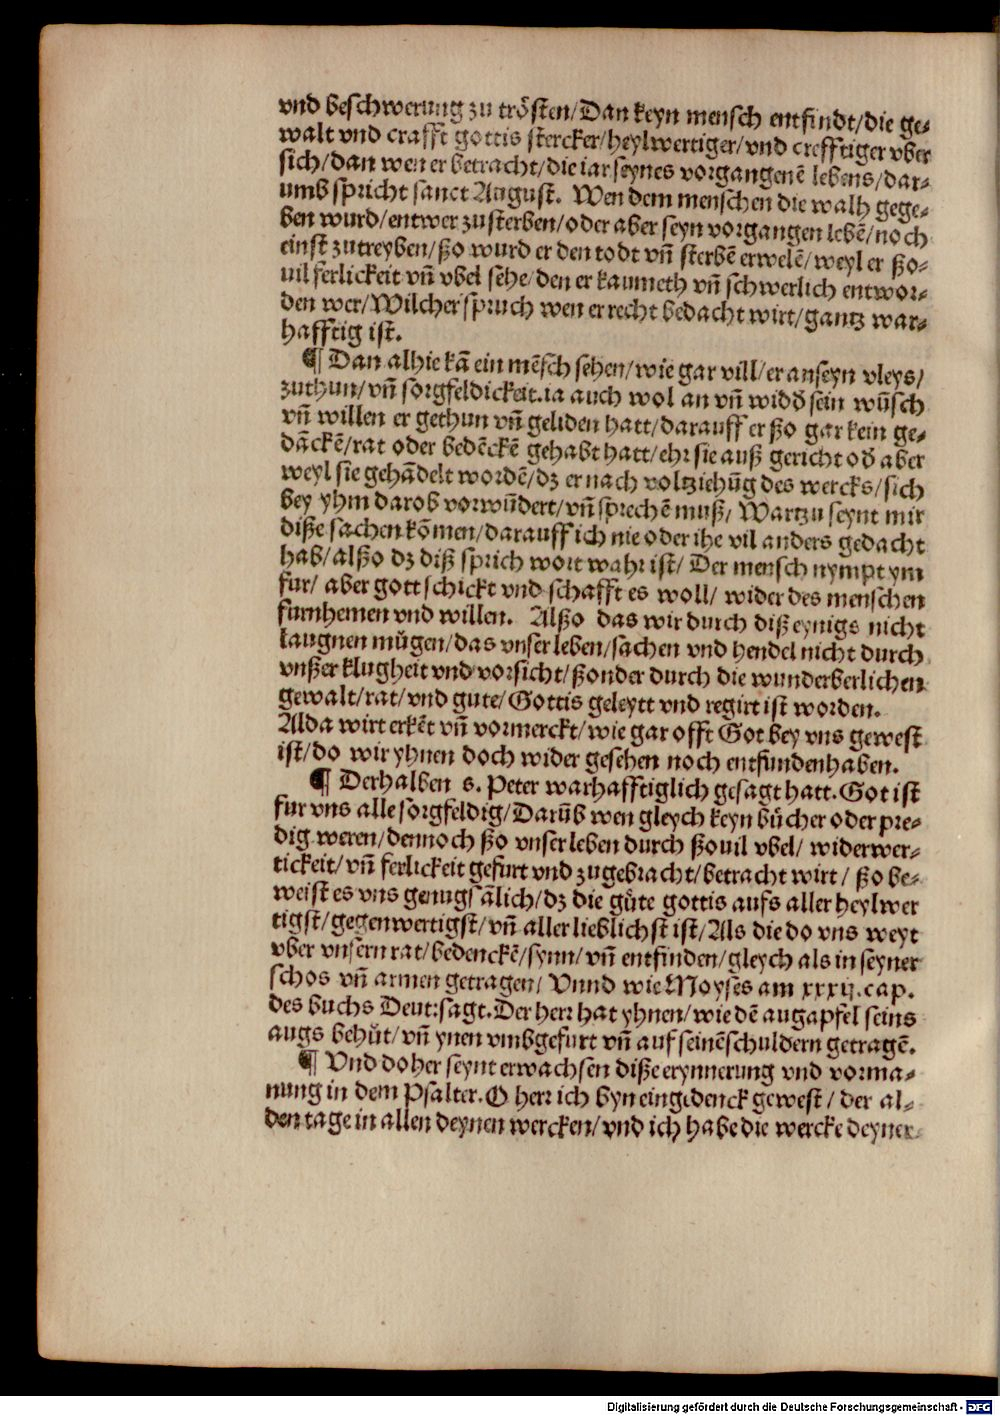 vnd beschwerung zu trösten/Dan keyn mensch entfindt/die ge⸗
walt vnd crafft gottis stercker/heylwertiger/vnd crefftiger vber
sich/dan wen er betracht/die iar seynes vorgangenẽ lebens/dar⸗
umb spricht sanct August. Wen dem menschen die walh gege⸗
ben wurd/entwer zusterben/oder aber seyn vorgangen lebẽ/noch
einst zutreyben/ßo wurd er den todt vñ sterbẽ erwelẽ/weyl er ßo⸗
uil ferlickeit vñ vbel sehe/den er kaumeth vñ schwerlich entwor⸗
den wer/Wilcher spruch wen er recht bedacht wirt/gantz war⸗
hafftig ist.
¶ Dan alhie kã ein mẽsch sehen/wie gar vill/er an seyn vleys/
zuthun/vñ sorgfeldickeit.ia auch wol an vñ widd̾ sein wũsch
vñ willen er gethun vñ geliden hatt/darauff er ßo gar kein ge⸗
dãckẽ/rat oder bedẽckẽ gehabt hatt/ehr sie auß gericht od̾ aber
weyl sie gehãdelt wordẽ/dz er nach voltziehũg des wercks/sich
bey yhm darob vorwũdert/vñ sprechẽ muß/Wartzu seynt mir
diße sachen kõmen/darauff ich nie oder ihe vil anders gedacht
hab/alßo dz diß sprich wort wahr ist/Der mensch nympt ym
fur/ aber gott schickt vnd schafft es woll/ wider des menschen
furnhemen vnd willen. Alßo das wir durch diß eynigs nicht
laugnen mügen/das vnser leben/sachen vnd hendel nicht durch
vnßer klugheit vnd vorsicht/ßonder durch die wunderberlichen
gewalt/rat/vnd gute/Gottis geleytt vnd regirt ist worden.
Alda wirt erkẽt vñ vormerckt/wie gar offt Got bey vns gewest
ist/do wir yhnen doch wider gesehen noch entfunden haben.
¶ Derhalben s. Peter warhafftiglich gesagt hatt.Got ist
fur vns alle sorgfeldig/Darũb wen gleych keyn bücher oder pre⸗
dig weren/dennoch ßo vnser leben durch ßouil vbel/ widerwer⸗
tickeit/vñ ferlickeit gefurt vnd zugebracht/betracht wirt/ ßo be⸗
weist es vns genugsãlich/dz die güte gottis aufs aller heylwer
tigst/gegenwertigst/vñ aller lieblichst ist/Als die do vns weyt
vber vnsern rat/bedenckẽ/synn/vñ entfinden/gleych als in seyner
schos vñ armen getragen/ Vnnd wie Moyses am xxxij.cap.
des buchs Deut:sagt.Der herr hat yhnen/wie dẽ augapfel seins
augs behüt/vñ ynen vmbgefurt vñ auf seinẽ schuldern getragẽ.
¶ Vnd do her seynt erwachsen diße erynnerung vnd vorma⸗
nung in dem Psalter.O herr ich byn eingedenck gewest/ der al⸗
den tage in allen deynen wercken/vnd ich habe die wercke deyner⸗
Digitalisierung gefördert durch die Deutsche Forschungsgemeinschaft - DFG